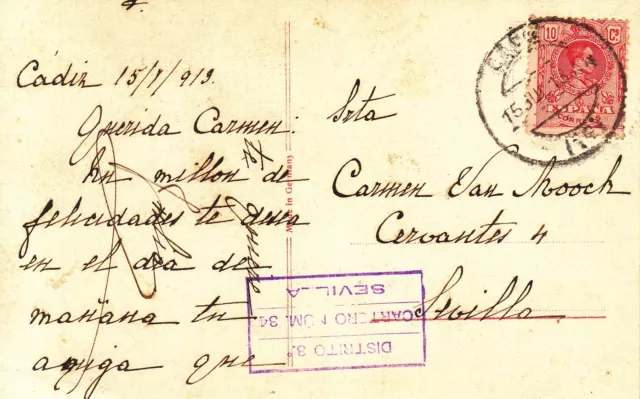 Cádiz 15/7/913.
Querida Carmen:
Un millon de
felicidades te desea
en el dia de
mañana tu
amiga que
Made in Germany
Srta
Carmen Van Mooch
Cervantes 4
Sevilla
DISTRITO 3.º
CARTERO NÚM. 34
SEVILLA
10 Cs.
ESPAÑA
CORREOS